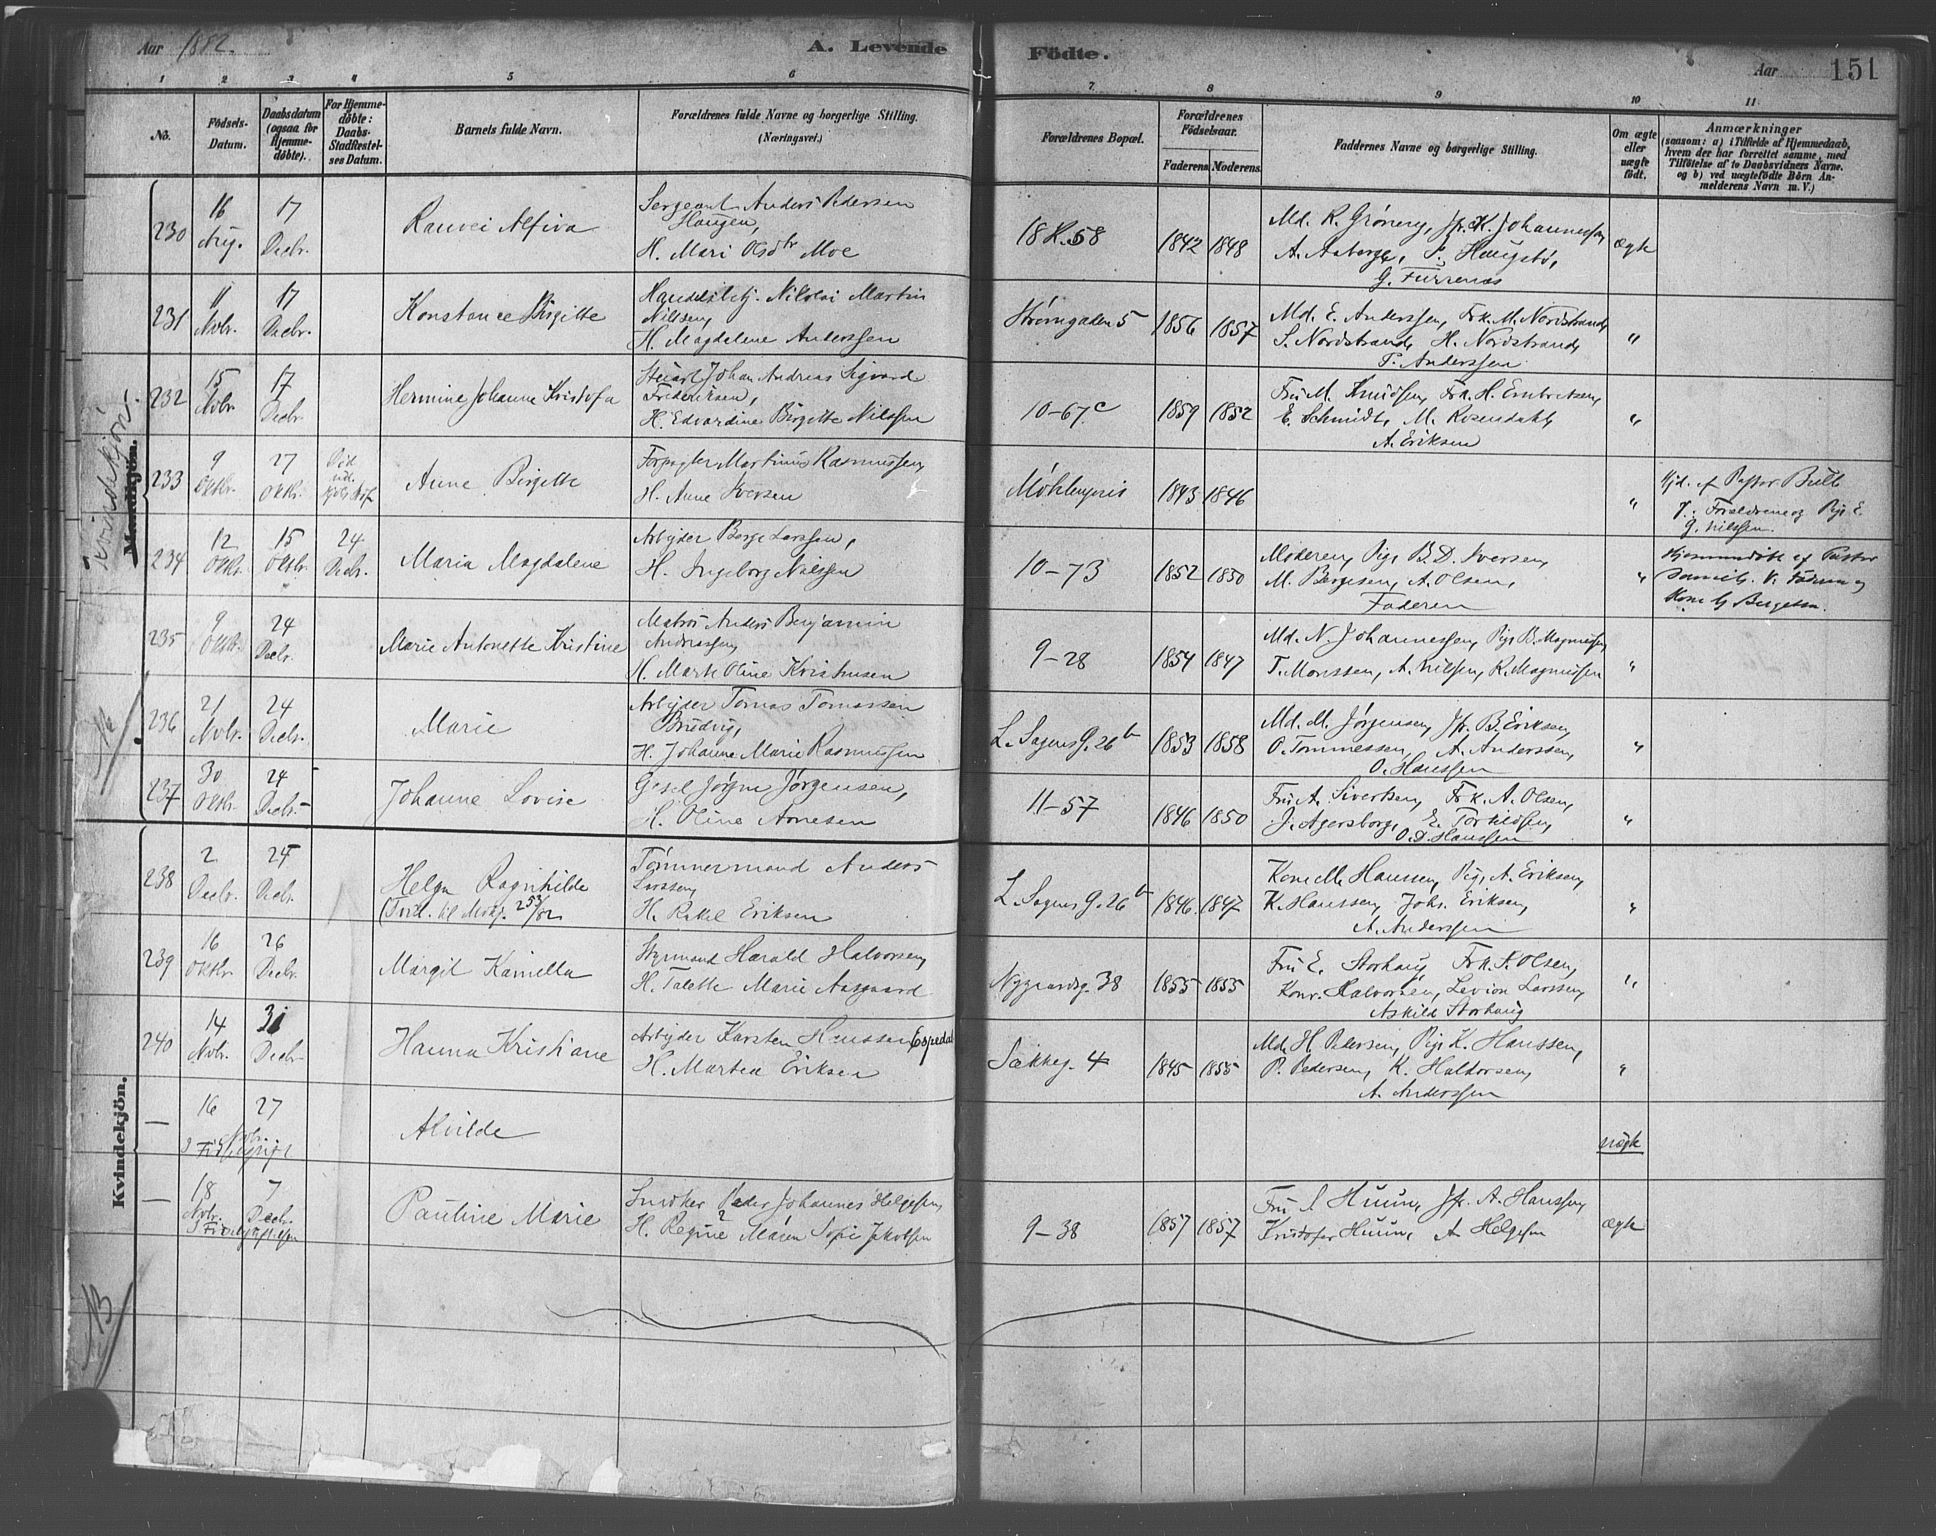 Aar 1882. A. Levende Födte. Aar 151
1 2 3 4 5 6 7 8 9 10 11
No.
Fødsels-
Datum.
Daabsdatum
(ogsaa for
Hjemme-
døbte).
For Hjemme-
døbte:
Daabs-
Stadfestel-
ses Datum.
Barnets fulde Navn.
Forældrenes fulde Navne og borgerlige Stilling.
(Næringsvei.)
Forældrenes Bopæl.
Forældrenes
Fødselsaar.
Faderens Moderens
Faddernes Navne og borgerlige Stilling.
Om ægte
eller
uægte
født.
Anmærkninger
(saasom: a) i Tilfælde af Hjemmedaab,
hvem der har forrettet samme, med
Tilföielse af to Daabsvidners Navne.
og b) ved uægtefödte Börn An-
melderens Navn m. V.)
Kvindekjön.
Mandkjön.
230 16 Aug. 17 Decbr.
Ranvei Alfiva
Sergeant Anders Pedersen
Haugen,
H. Mari Olsdtr Moe
18 R. 58 1842 1848
Md. R. Grønerg, Jfr. K. Johannessen,
A. Aaberge, S. Haugstø,
G. Furrenas
ægte
231 11 Novbr. 17 Decbr.
Konstance Birgitte
Handelsbetj. Nikolai Martin
Nilsen,
H. Magdalene Anderssen
Strömgaden 5 1856 1857
Md. E. Anderssen, Frk. M. Nordstrand,
S. Nordstrand, H. Nordstrand,
P. Anderssen
"
232 15 Novbr. 17 Decbr.
Hermine Johanne Kristofa
Stuert Johan Andreas Sigvard
Frederiksen,
H. Edvardine Birgitte Nilssen
10-67c 1859 1852
Fru M. Knudsen, Frk. H. Embretsen,
E. Schmidt, M. Rosendahl,
A. Eriksen
"
233 9 Oktbr. 27 Oktbr. Død ud.
Anne Birgitte
Forpagter Martinus Rasmussen,
H. Anne Iversen
Möhlenpris 1843 1846
"
Hjd. af Pastor Bull
Forældrene og Pige E.
G. Nilssen.
234 12 Oktbr. 15 Oktbr. 24 Decbr.
Maria Magdalene
Arbeider Berge Larssen,
H. Ingeborg Nilssen
10-73 1852 1850
Moderen, Pige B. D. Iversen,
M. Bergesen, A. Olsen,
Faderen
"
Hjemmedöbt af Pastor
Kone G Bergesen.
235 9 Oktbr. 24 Decbr.
Marie Antonette Kristine
Matros Anders Benjamin
Andreassen,
H. Marte Oline Kristensen
9-28 1854 1847
Md. N. Johannessen, Pige B. Magnussen,
T. Monssen, A. Nilsen, R. Magnussen
"
236 21 Novbr. 24 Decbr.
Marie
Arbeider Tomas Tomassen
Brudvig,
H. Johanne Marie Rasmussen
L. Sagens G. 26b 1853 1858
Md. M. Jørgensen, Jfr. B. Eriksen,
O. Tommessen, A. Anderssen,
O. Hanssen
"
237 30 Oktbr. 24 Decbr.
Johanne Lovise
Gesel Jørgen Jørgensen,
H. Oline Arnesen
11-57 1846 1850
Fru A. Sivertsen, Frk. A. Olsen,
J. Agersborg, E. Torkildsen,
O. D. Hanssen
"
Kvindekjön.
238 2 Decbr. 25 Decbr.
Helga Ragnhilde
Tømmermand Anders
Larssen,
H. Rakel Eriksen
L. Sagens G. 26b 1846 1847
Kone M. Hanssen, Pige A. Eriksen,
K. Hanssen, Johs. Eriksen,
A. Anderssen
"
239 16 Oktbr. 26 Decbr.
Margit Kamella
Styrmand Harald Halvorsen,
H. Talette Marie Aasgaard
Nygaardsg. 38 1855 1855
Fru E. Storhaug, Frk. S. Olsen,
Konr. Halvorsen, Levion Larssen,
Askild Storhaug
"
240 14 Novbr. 31 Decbr.
Hanna Kristiane
Arbeider Karsten Hanssen Espedal
H. Martea Eriksen
Sækkeg. 4 1845 1855
Md. H. Pedersen, Pige K. Hanssen,
P. Pedersen, K. Haldorsen,
A. Anderssen
"
— 16 27 Novbr.
Alvilde
uægte
— 18 Novbr. 7 Decbr.
Pauline Marie
Snedker Peder Johannes Helgesen,
H. Regine? Maren Sofie Jakobsen
9-38 1857 1857
Fru S Huun, Jfr. A. Hanssen,
Kristofer Huun, A Helgesen
ægte